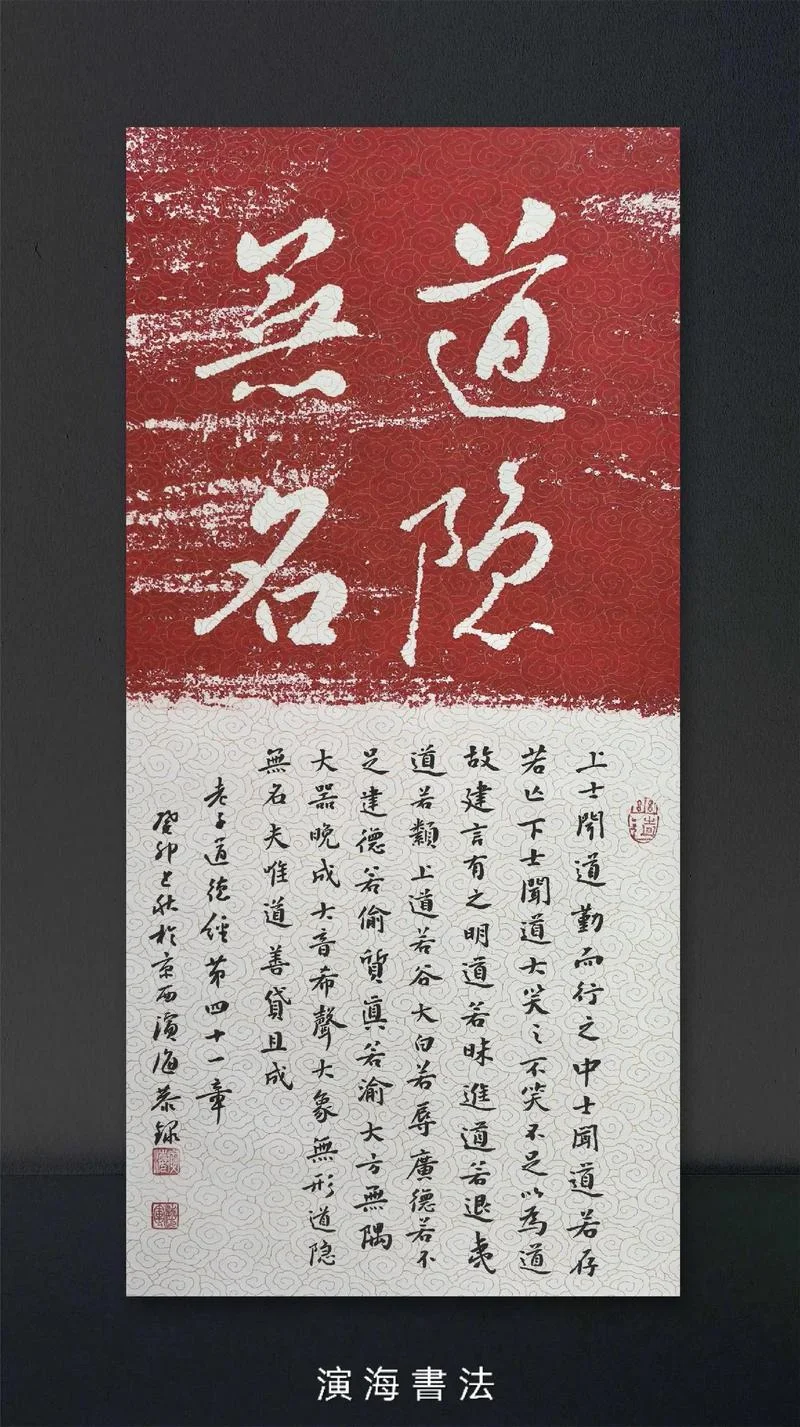 道隐
無名
上士聞道勤而行之中士聞道若存
若亡下士聞道大笑之不笑不足以為道
故建言有之明道若昧進道若退夷
道若纇上道若谷大白若辱廣德若不
足建德若偷質真若渝大方無隅
大器晚成大音希聲大象無形道隐
無名夫唯道善貸且成
老子道德經第四十一章
癸卯之秋於京西演海恭録
演海書法